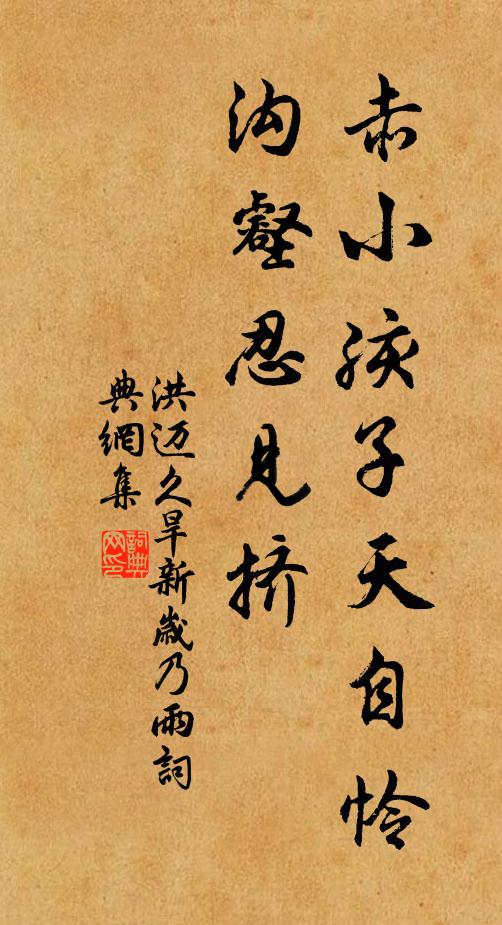 赤小孩子天自怜
沟壑忍见挤
洪迈久旱新歲乃雨詞
典網集
詞典网印